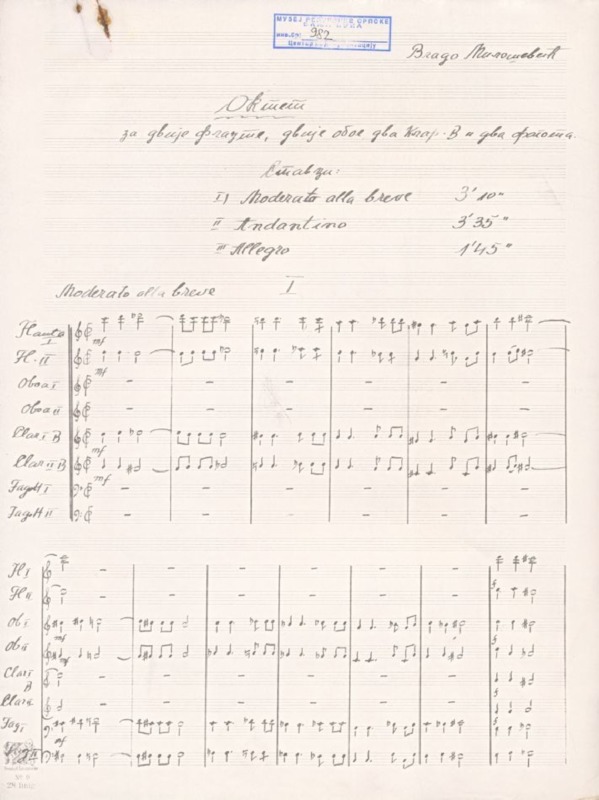 МУЗЕЈ РЕПУБЛИКЕ СРПСКЕ
БАЊА ЛУКА
инв.бр. 982
Владо Милошевић
Октет
за двије флауте, двије обое два Клар. B и два фагота.
Ставзи:
I) Moderato alla breve 3'10"
II Andantino 3'35"
III Allegro 1'45"
Moderato alla breve I
Flauto I mf
Fl. II mf
Oboa I
Oboa II
Clar I B mf
Clar II B mf
Fagott I
Fagott II
Fl I f
Fl II f
Ob I mf f
Ob II mf f
Clar I B f
Clar II f
Fag I mf f
II